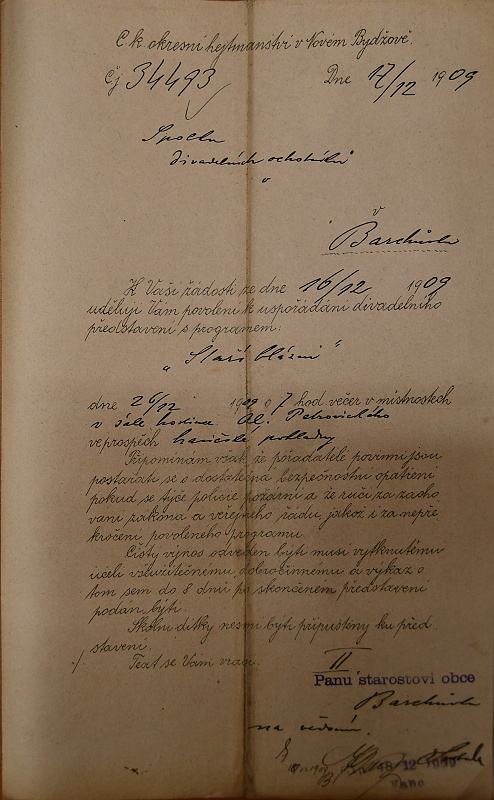 C. k. okresní hejtmanství v Novém Bydžově.
Čj 34493 Dne 17/12 1909
Spolku
divadelních ochotníků
v
Barchůvku
K Vaší žádosti ze dne 16/12 1909
uděluji Vám povolení k uspořádání divadelního
představení s programem:
„Staří blázni"
dne 26/12 1909 o 7 hod. večer v místnostech
v sále hostince Al. Petrovického
ve prospěch hasičské pokladny
Připomínám však, že pořadatelé povinni jsou
postarati se o dostatečná bezpečnostní opatření
pokud se týče policie požární a že ručí za zacho
vání zákona a veřejného řádu, jakož i za nepře
kročení povoleného programu.
Čistý výnos odveden býti musí vytknutému
účeli všeužitečnému, dobročinnému a výkaz o
tom sem do 8 dnů po skončeném představení
podán býti.
Školní dítky nesmí býti připuštěny ku před
stavení.
Text se Vám vrací.
II
Panu starostovi obce
Barchůvku
na vědomí.
18/12 1909